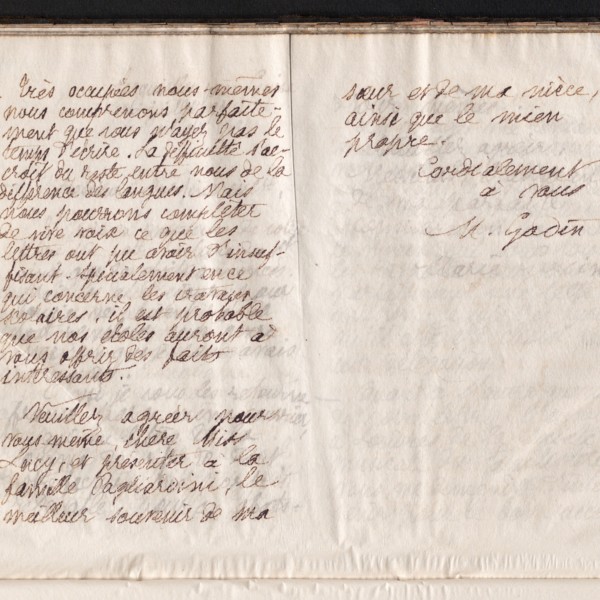 Très occupées nous-mêmes
nous comprenons parfaite-
ment que vous n'ayez pas le
temps d'écrire. La difficulté s'ac-
croit du reste entre nous de la
différence des langues. Mais
nous pourrons compléter
de vive voix ce que les
lettres ont pu avoir d'insuf-
fisant. Spécialement en ce
qui concerne les travaux
scolaires, il est probable
que nos écoles auront à
vous offrir des faits
intéressants.
Veuillez agréer pour
vous-même, chère Miss
Lucy, et présenter à la
famille Pagliardini, le
meilleur souvenir de ma
sœur et de ma nièce,
ainsi que le mien
propre.
Cordialement
à vous
M. Godin